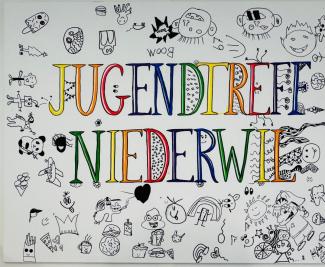 BOOM
JUGENDTREFF
NIEDERWIL